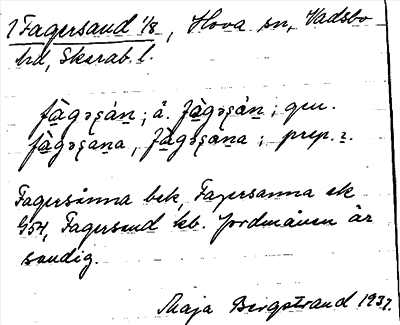 1 Fagersand 1/8, Hova sn, Vadsbo
hd, Skarab. l.
fàgəʂán; å. fàgəʂàn; gen.
fàgəʂana, fàgəʂana; prep. i.
Fagersånna bek, Fagersanna ek
G54, Fagersand kb. Jordmånen är
sandig.
Maja Bergstrand 1937.